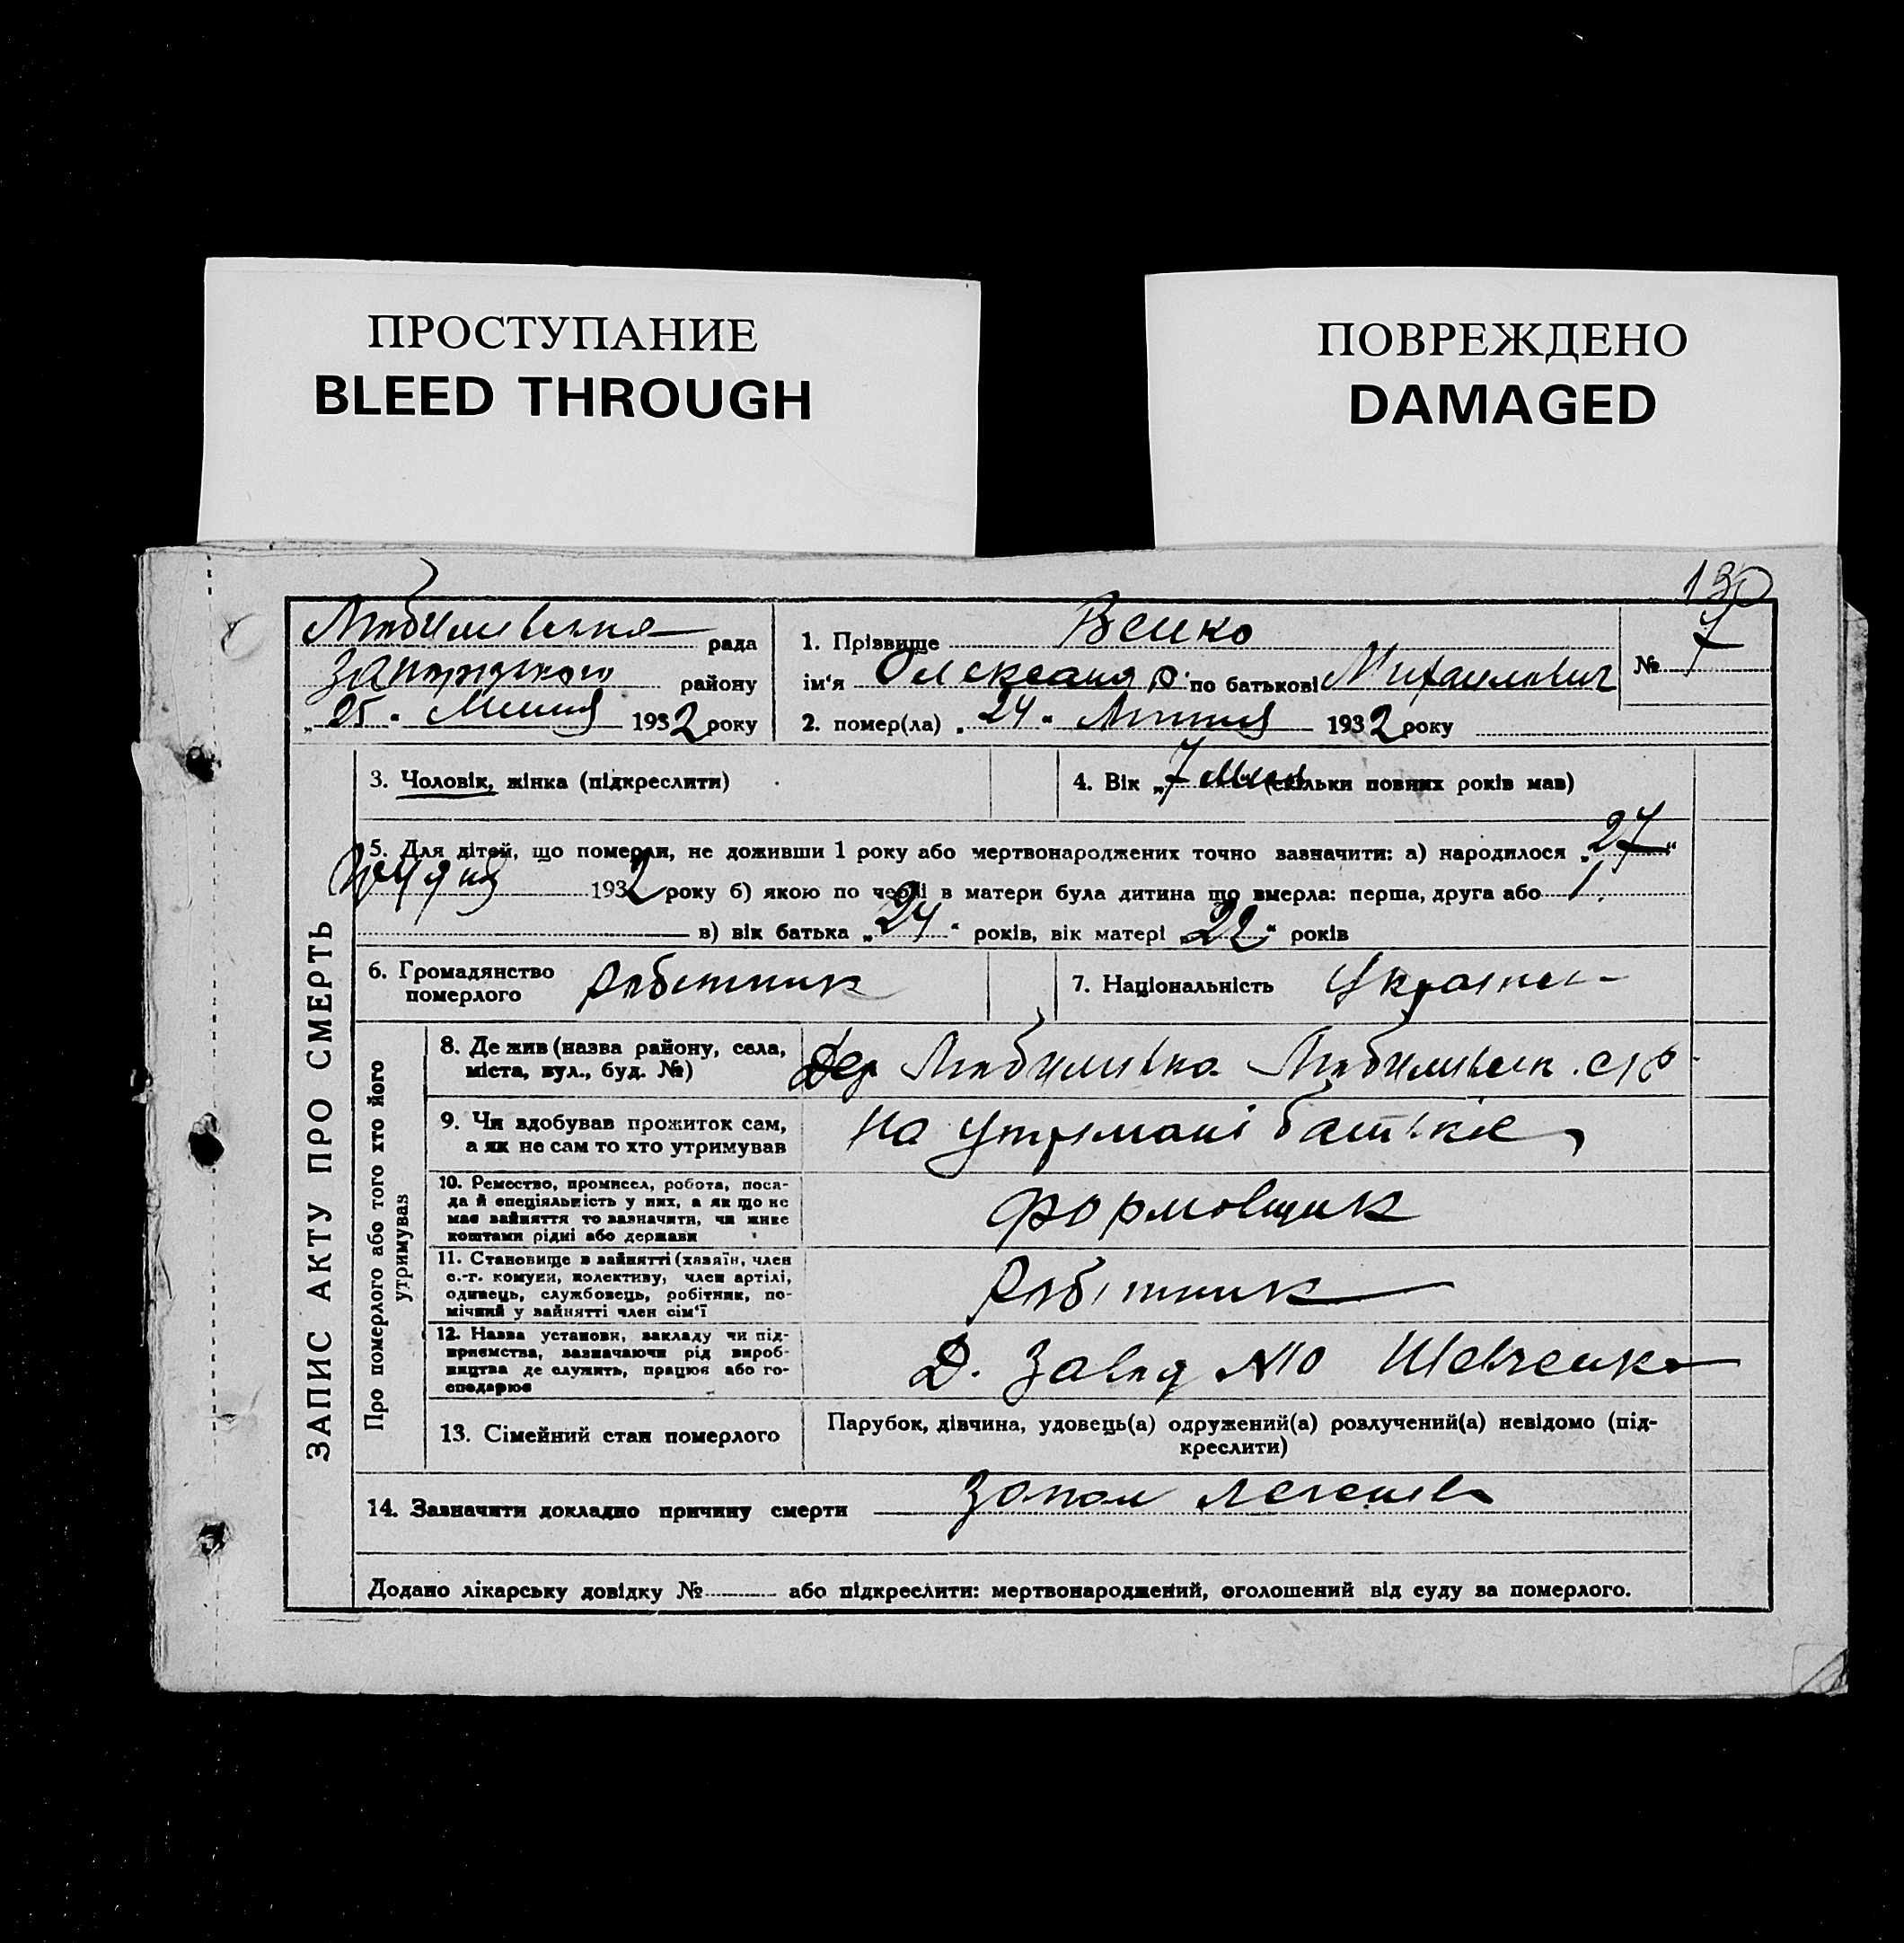 ПРОСТУПАНИЕ
BLEED THROUGH
ПОВРЕЖДЕНО
DAMAGED
130
Любимівська рада
Запорізького району
„25" Липня 1932 року
1. Прізвище Вейко
ім'я Олександр по батькові Михайлович
№ 7
2. помер(ла) „24" Липня 1932 року
ЗАПИС АКТУ ПРО СМЕРТЬ
3. Чоловік, жінка (підкреслити)
4. Вік „7 Міся (скільки повних років мав)
5. Для дітей, що померли, не доживши 1 року або мертвонароджених точно зазначити: а) народилося „27"
Грудня 1932 року б) якою по черзі в матери була дитина що вмерла: перша, друга або 1
в) вік батька „24" років, вік матері „22" років
6. Громадянство померлого Робітник
7. Національність Украінец
Про померлого або того хто його утримував
8. Де жив (назва району, села,
міста, вул., буд. №)
Дер Любимівка Любимівськ. с/р
9. Чи здобував прожиток сам,
а як не сам то хто утримував
На утримані батьків
10. Ремество, промисел, робота, поса-
да й спеціяльність у них, а як що не
має зайняття то зазначити, чи живе
коштами рідні або держави
Формовщик
11. Становище в зайнятті (хазяїн, член
с.-г. комуни, колективу, член артілі,
одинець, службовець, робітник, по-
мічний у зайнятті член сім'ї
Робітник
12. Назва установи, закладу чи під-
приємства, зазначаючи рід вироб-
ництва де служить, працює або го-
сподарює
Д. Завод №10 Шевченка
13. Сімейний стан померлого
Парубок, дівчина, удовець(а) одружений(а) розлучений(а) невідомо (під-
креслити)
14. Зазначити докладно причину смерти Запал легенів
Додано лікарську довідку № або підкреслити: мертвонароджений, оголошений від суду за померлого.